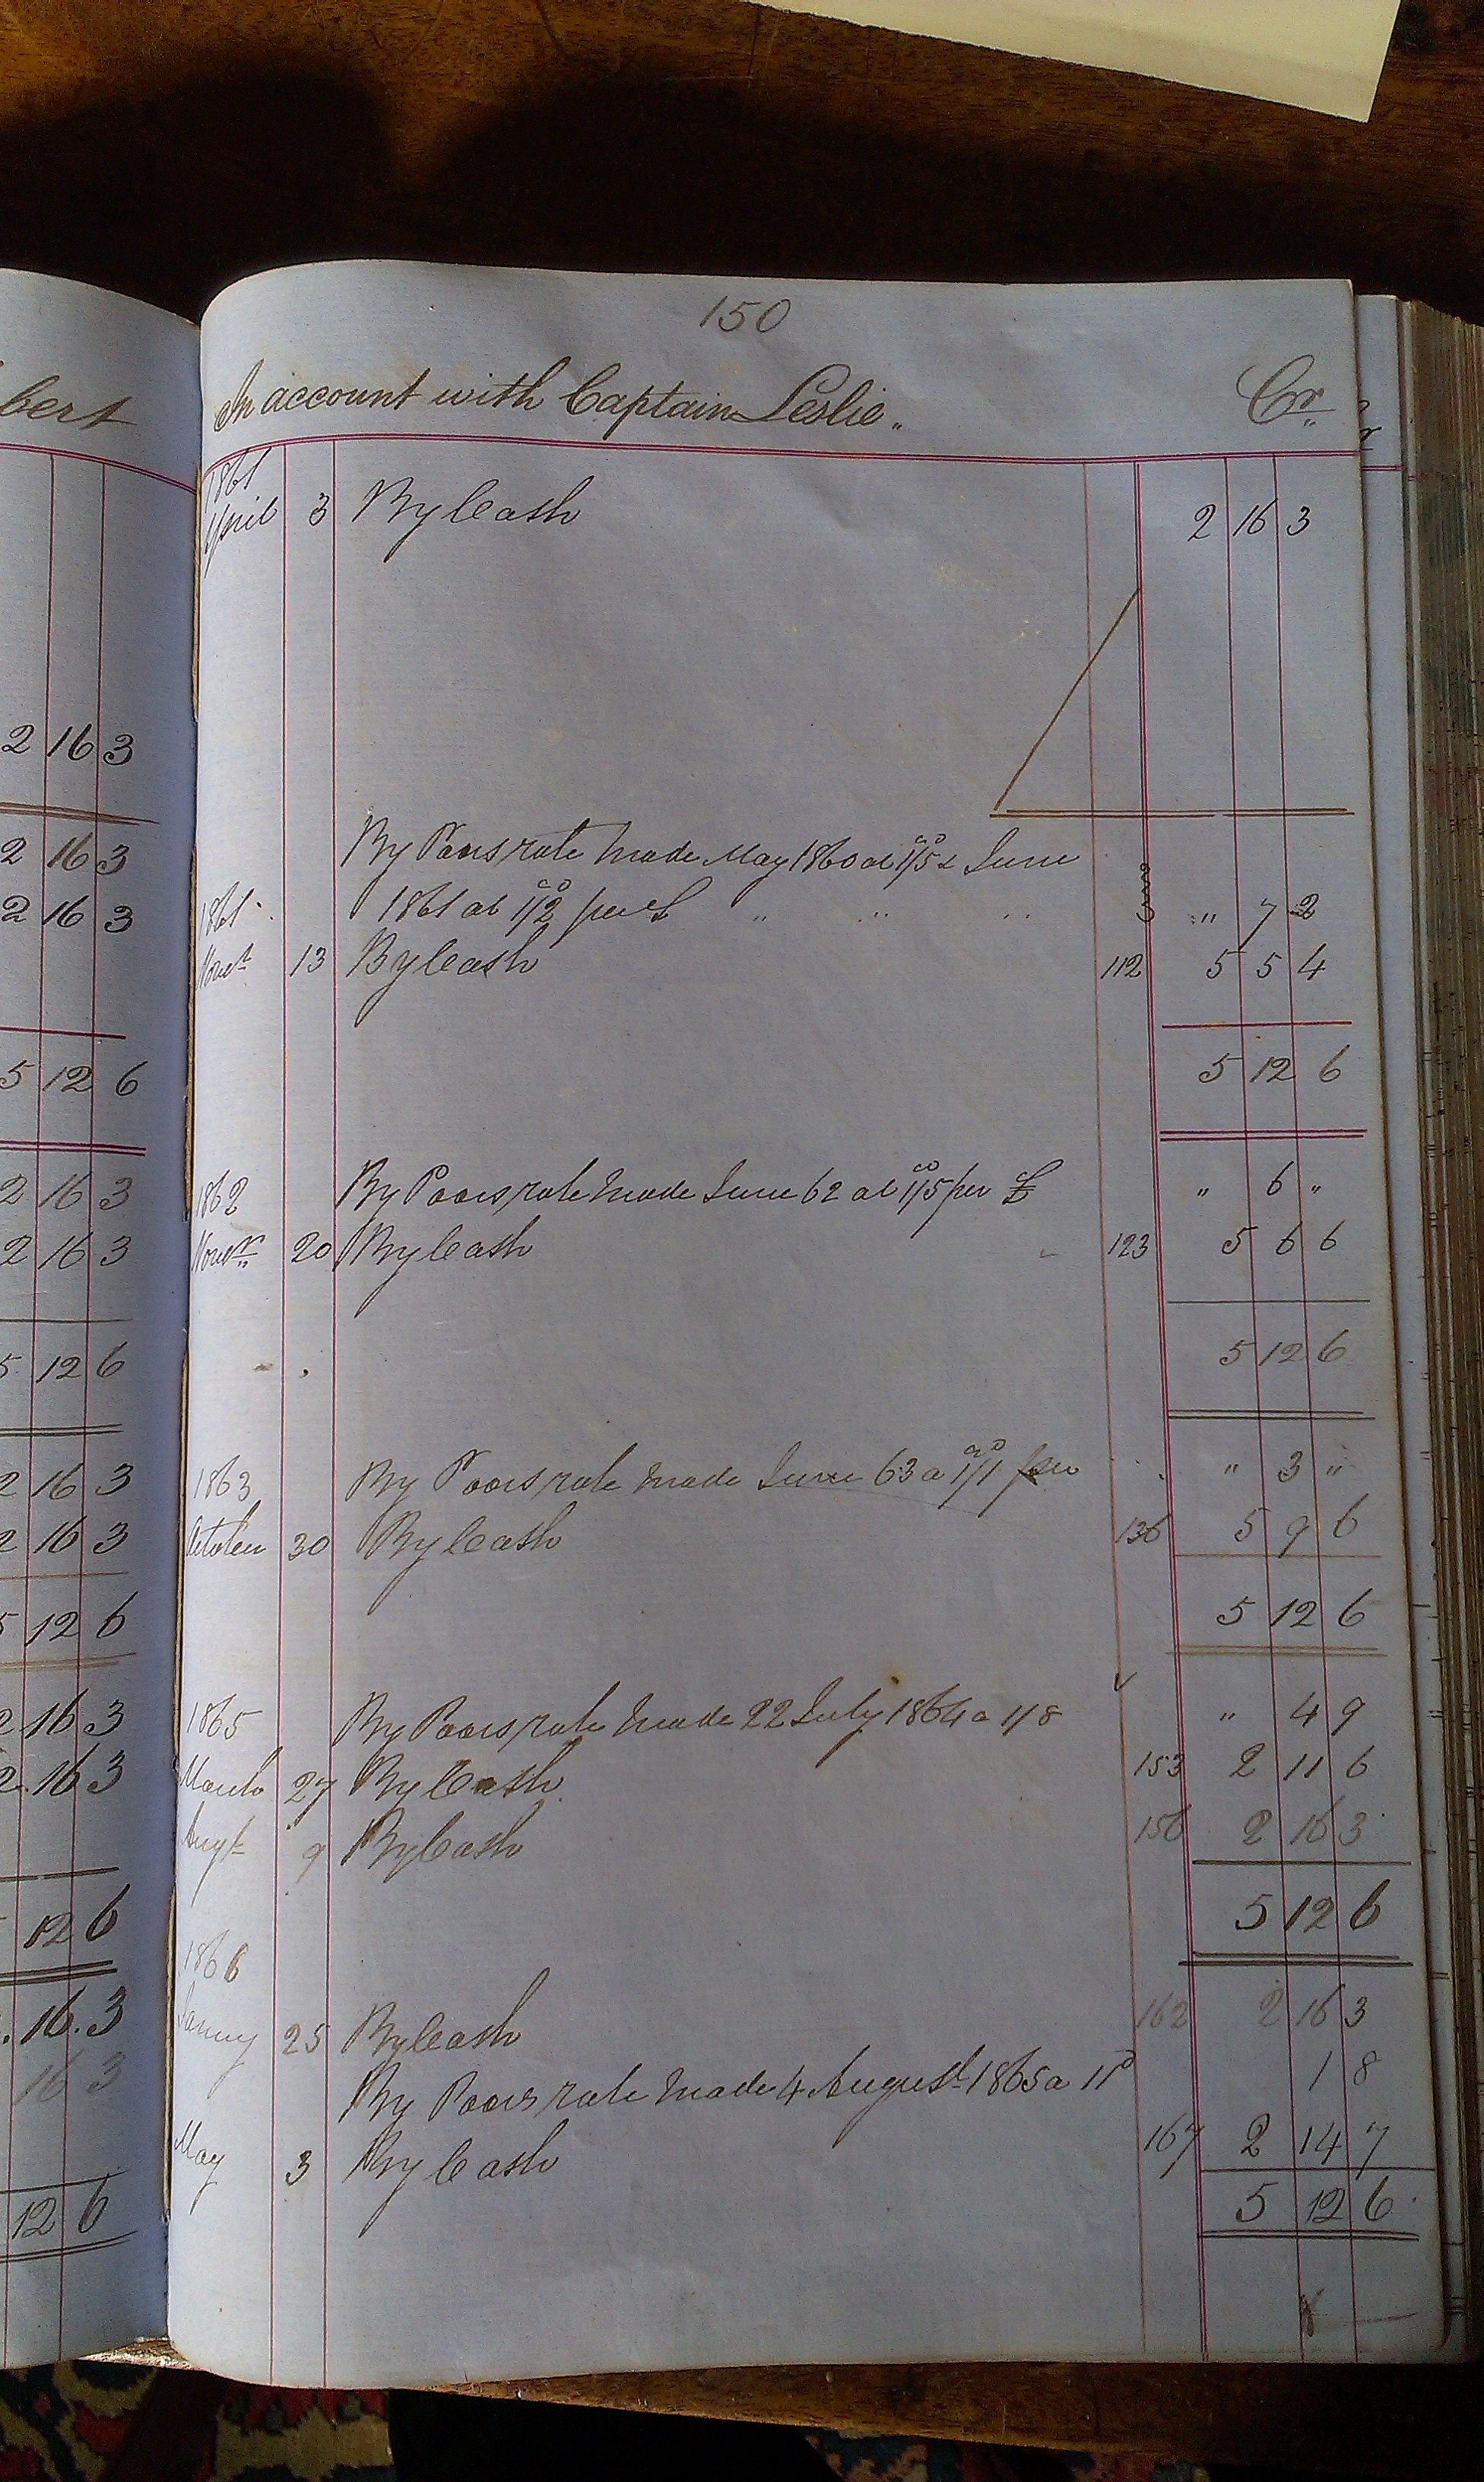 bert
2 16 3
2 16 3
2 16 3
5 12 6
2 16 3
2 16 3
5 12 6
2 16 3
2 16 3
5 12 6
2 16 3
2 16 3
12 6
16 3
16 3
12 6
150
In account with Captain Leslie Cr
1861
April 3 By Cash 2 16 3
By Poors rate made May 1860 at 1/5 & June
1861 at 1/2 per £ " " " " 7 2
1861
Novr 13 By Cash 112 5 5 4
5 12 6
1862 By Poors rate made June 62 at 1/5 per £ " 6 "
Novr 20 By Cash 123 5 6 6
5 12 6
1863 By Poors rate made June 63 a 1/1 per " 3 "
October 30 By Cash 136 5 9 6
5 12 6
1865 By Poors rate made 22 July 1864 a 1/8 " 4 9
March 27 By Cash 153 2 11 6
Augt 9 By Cash 156 2 16 3
5 12 6
1866
Janny 25 By Cash 162 2 16 3
By Poors rate made 4 August 1865 a 11D 1 8
May 3 By Cash 167 2 14 7
5 12 6